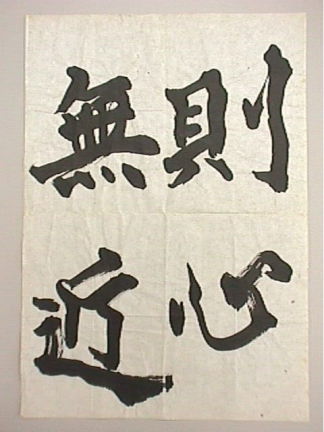 則心
無近